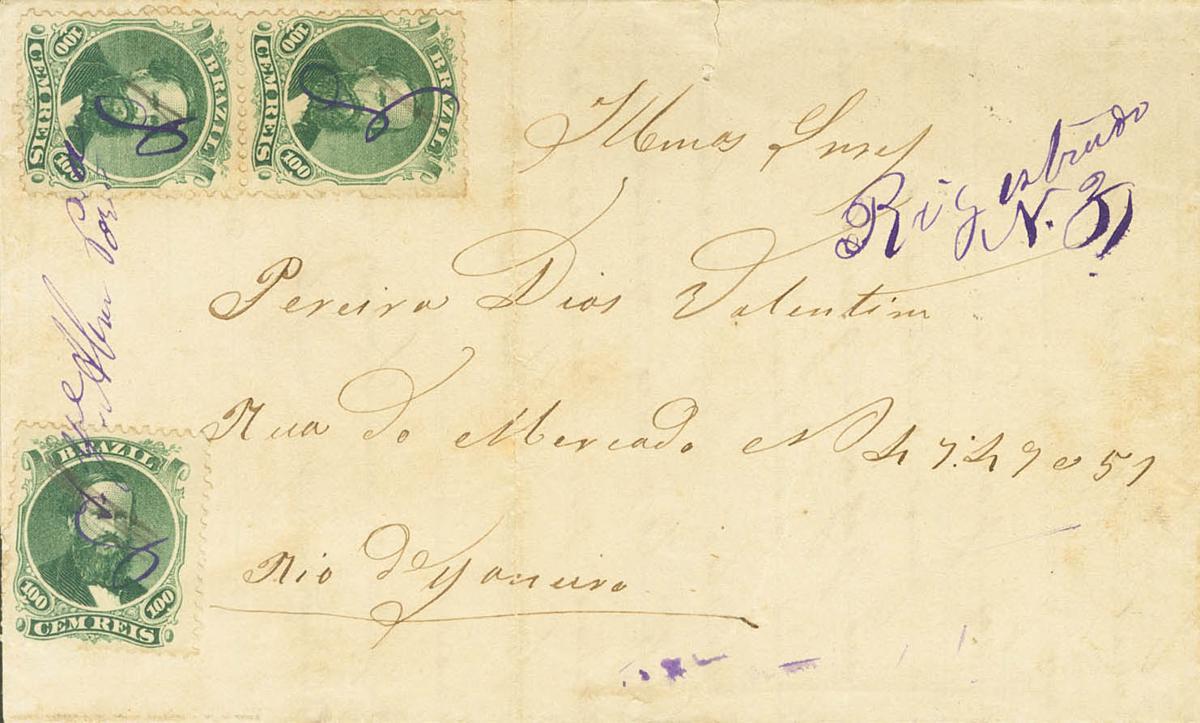 BRAZIL
100 100
CEM REIS
BRAZIL
100 100
CEM REIS
Illmos Snres
Rigestrado
N. 31
Pereira Dias Valentim
Rua do Mercado No 47.49 e 51
Rio de Janeiro
BRAZIL
100 100
CEM REIS